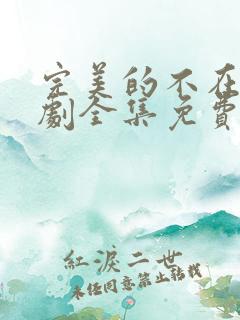 完美的不在
劇全集免費
紅淚二世
未經同意禁止轉載